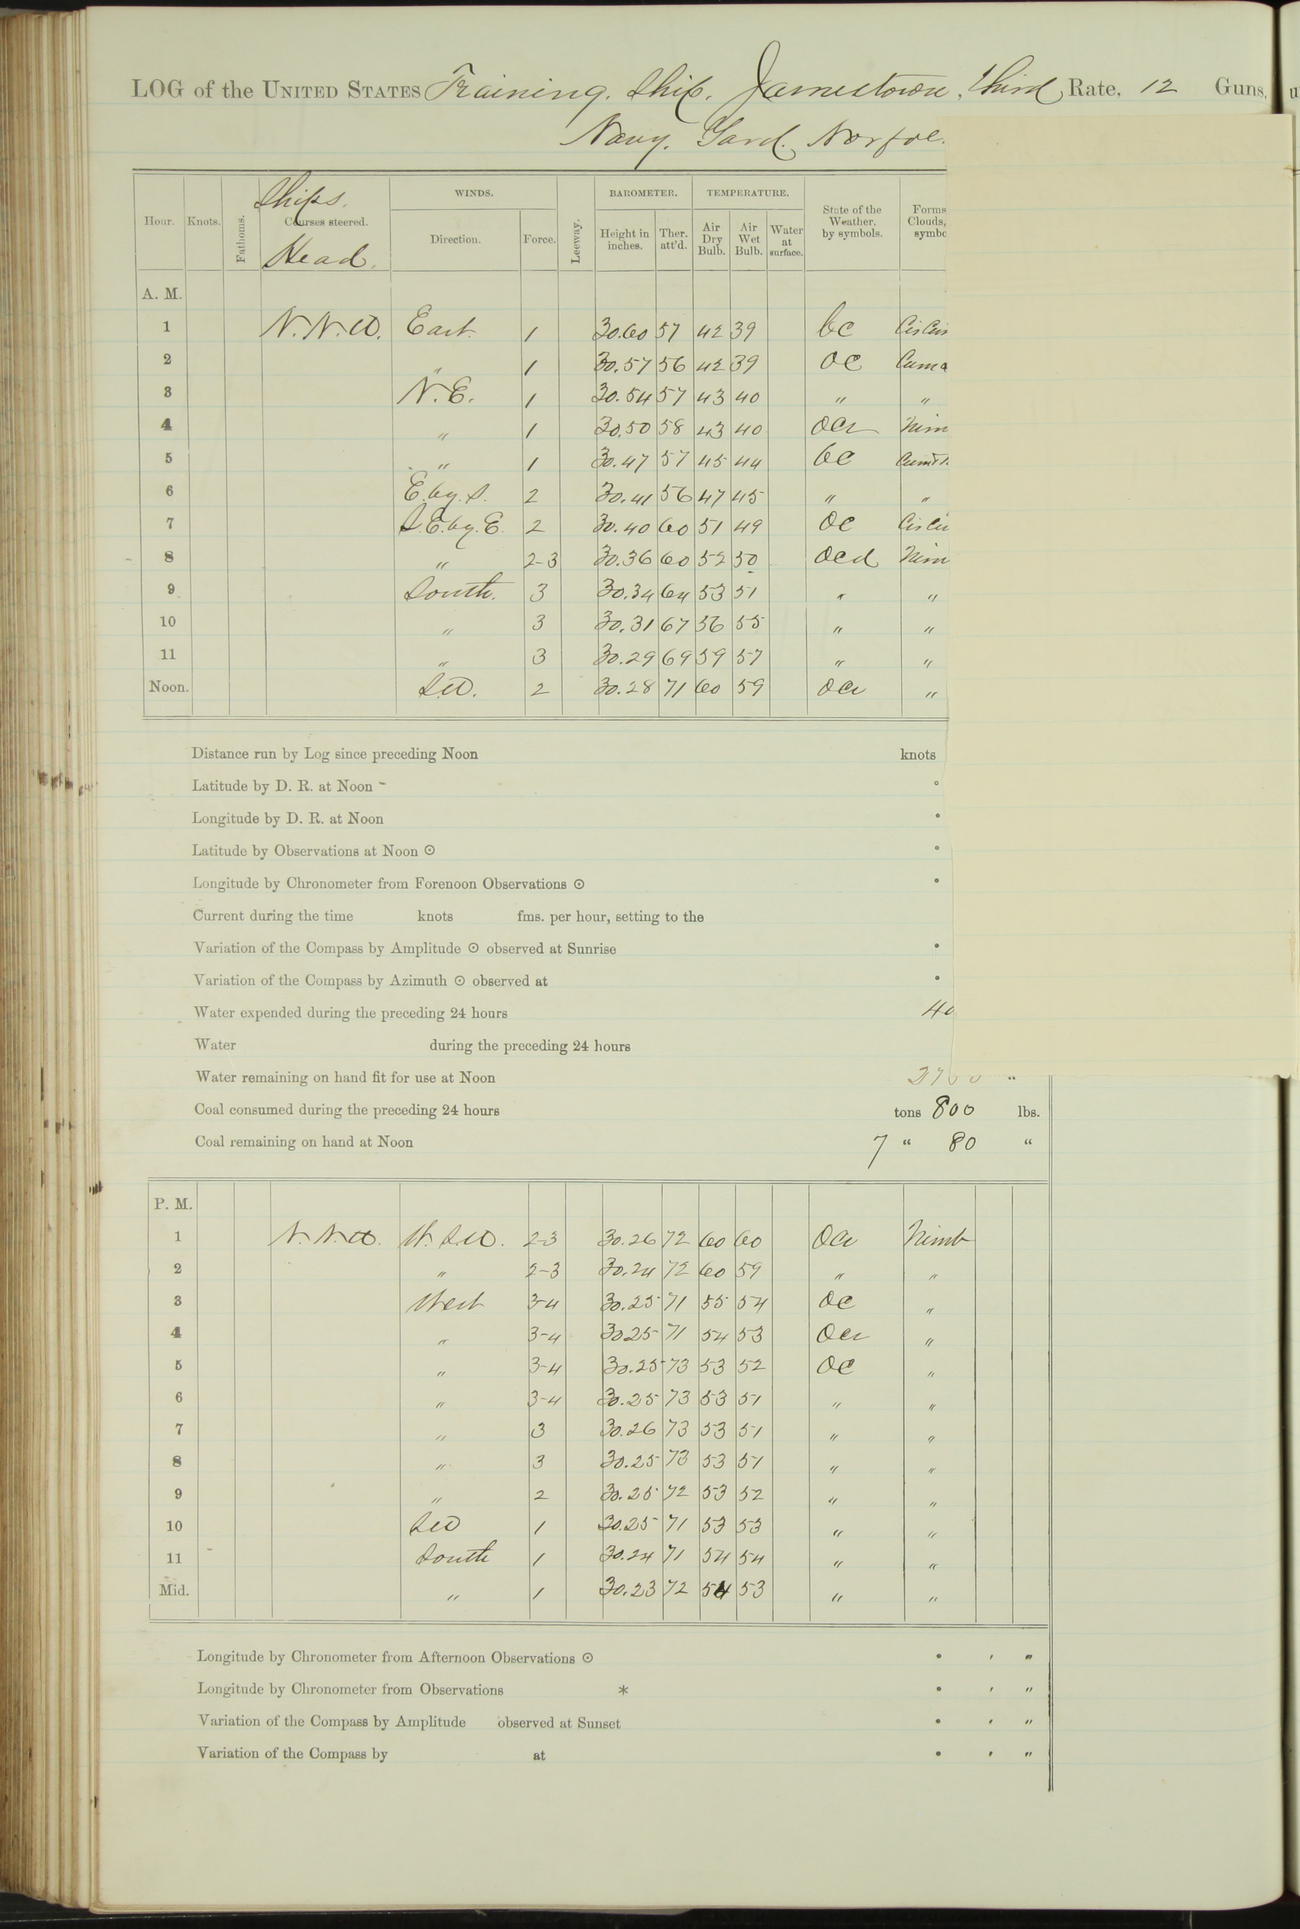 LOG of the UNITED STATES Training Ship. Jamestown, third Rate, 12 Guns,
Navy. Yard. Norfol
Ships.
Head.
Hour. Knots. Fathoms. Courses steered. WINDS. Direction. Force. Leeway. BAROMETER. Height in inches. Ther. att'd. TEMPERATURE. Air Dry Bulb. Air Wet Bulb. Water at surface. State of the Weather, by symbols. Forms Clouds, symbo
A. M.
1 N.N.W. East. 1 30.60 57 42 39 bc CirCum
2 " 1 30.57 56 42 39 oc Cum
3 N.E. 1 30.54 57 43 40 " "
4 " 1 30.50 58 43 40 ocr Nim
5 " 1 30.47 57 45 44 bc
6 E.by.S. 2 30.41 56 47 45 " "
7 S.E.by.E. 2 30.40 60 51 49 oc CirCu
8 " 2-3 30.36 60 52 50 ocd Nim
9 South. 3 30.34 64 53 51 " "
10 " 3 30.31 67 56 55 " "
11 " 3 30.29 69 59 57 " "
Noon. S.W. 2 30.28 71 60 59 ocr "
Distance run by Log since preceding Noon knots
Latitude by D. R. at Noon °
Longitude by D. R. at Noon °
Latitude by Observations at Noon ☉ °
Longitude by Chronometer from Forenoon Observations ☉ °
Current during the time knots fms. per hour, setting to the
Variation of the Compass by Amplitude ☉ observed at Sunrise °
Variation of the Compass by Azimuth ☉ observed at °
Water expended during the preceding 24 hours 40
Water during the preceding 24 hours
Water remaining on hand fit for use at Noon "
Coal consumed during the preceding 24 hours tons 800 lbs.
Coal remaining on hand at Noon 7 " 80 "
P. M.
1 N.N.W. W.S.W. 2-3 30.26 72 60 60 ocr Nimb
2 " 2-3 30.24 72 60 59 " "
3 West 3-4 30.25 71 55 54 oc "
4 " 3-4 30.25 71 54 53 ocr "
5 " 3-4 30.25 73 53 52 oc "
6 " 3-4 30.25 73 53 51 " "
7 " 3 30.26 73 53 51 " "
8 " 3 30.25 73 53 51 " "
9 " 2 30.25 72 53 52 " "
10 SW 1 30.25 71 53 53 " "
11 South 1 30.24 71 54 54 " "
Mid. " 1 30.23 72 54 53 " "
Longitude by Chronometer from Afternoon Observations ☉ ° ' "
Longitude by Chronometer from Observations * ° ' "
Variation of the Compass by Amplitude observed at Sunset ° ' "
Variation of the Compass by at ° ' "